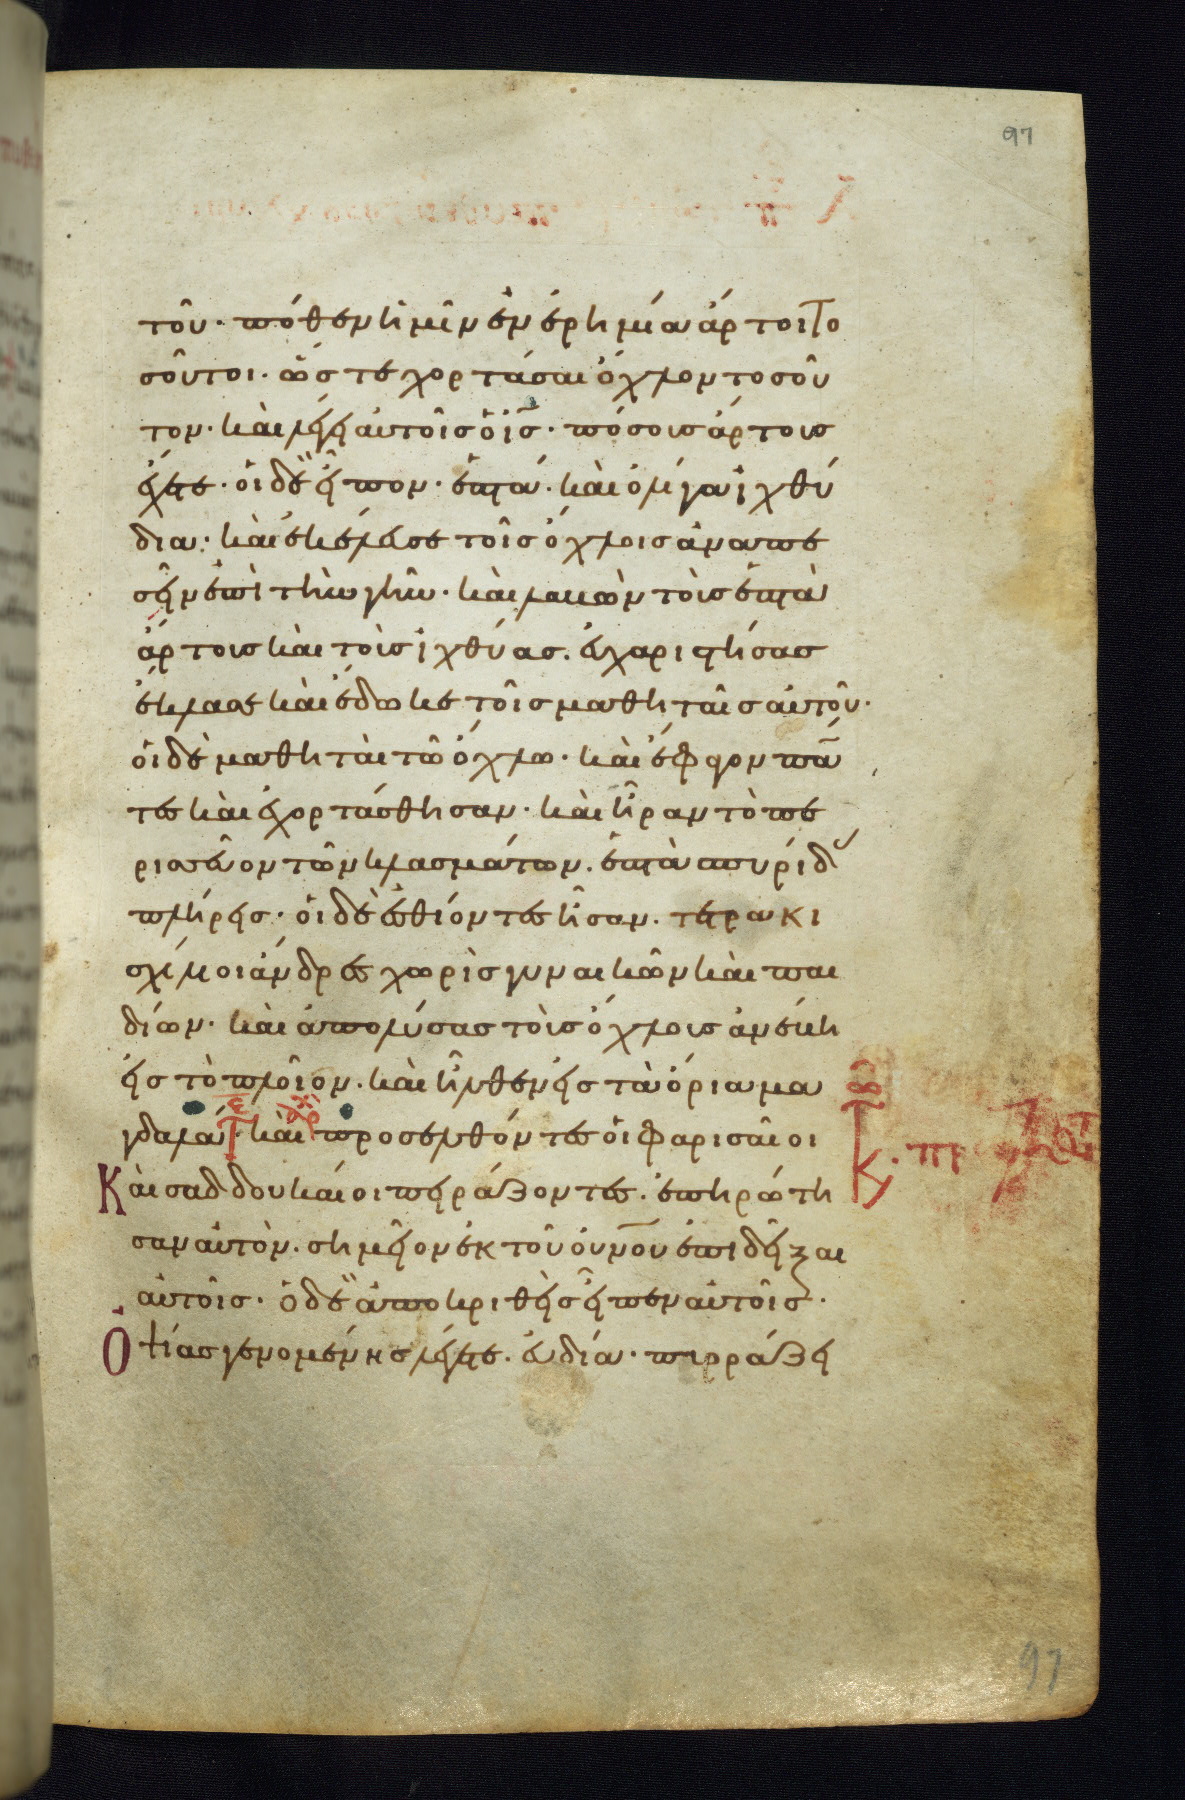 97
τοῦ· πόθεν ἡμῖν ἐν ἐρημία ἄρτοι το
σοῦτοι· ὥστε χορτάσαι ὄχλον τοσοῦ
τον· καὶ λέγει αὐτοῖς ὁ ἰς· πόσους ἄρτους
ἔχετε· οἱ δὲ εἶπον· ἑπτά· καὶ ὀλίγα ἰχθύ
δια· καὶ ἐκέλευσε τοῖς ὄχλοις ἀναπε
σεῖν ἐπὶ τὴν γῆν· καὶ λαβὼν τοὺς ἑπτὰ
ἄρτους καὶ τοὺς ἰχθύας· εὐχαριστήσας
ἔκλασε καὶ ἔδωκε τοῖς μαθηταῖς αὐτοῦ·
οἱ δὲ μαθηταὶ τῶ ὄχλω· καὶ ἔφαγον πά
τες καὶ ἐχορτάσθησαν· καὶ ἦραν τὸ πε
ρισσεῦον τῶν κλασμάτων· ἑπτὰ σπυρίδ
πλήρεις· οἱ δὲ ἐσθίοντες ἦσαν· τετρακι
σχίλιοι ἄνδρες χωρὶς γυναικῶν καὶ παι
δίων· καὶ ἀπολύσας τοὺς ὄχλους ἀνέβη
εἰς τὸ πλοῖον· καὶ ἦλθεν εἰς τὰ ὅρια μα
γδαλά· καὶ προσελθόντες οἱ φαρισαῖοι
Καὶ σαδδουκαίοι πειράζοντες· ἐπηρώτη
σαν αὐτὸν· σημεῖον ἐκ τοῦ οὐνοῦ ἐπιδεῖξαι
αὐτοῖς· ὁ δὲ ἀποκριθεὶς εἶπεν αὐτοῖς·
Ὀψίας γενομένης λέγετε· εὐδία· πυρράζει
97